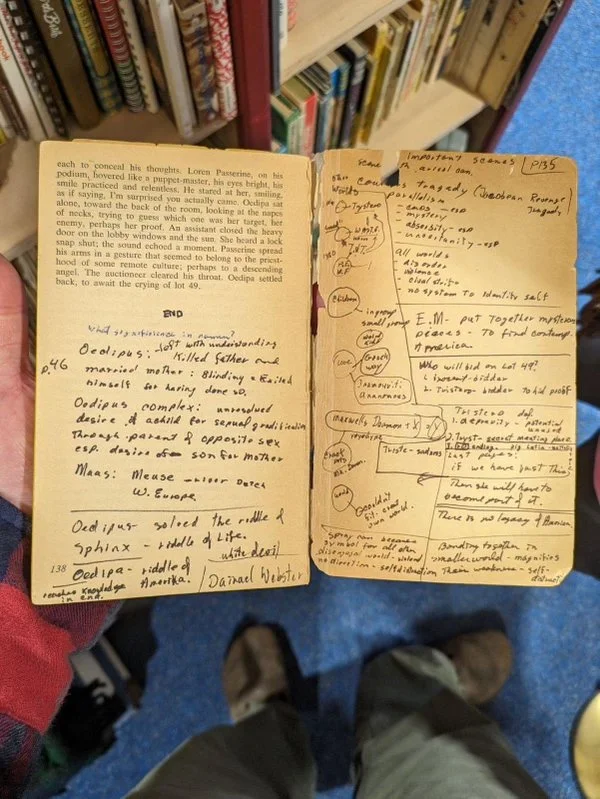 each to conceal his thoughts. Loren Passerine, on his
podium, hovered like a puppet-master, his eyes bright, his
smile practiced and relentless. He stared at her, smiling,
as if saying, I'm surprised you actually came. Oedipa sat
alone, toward the back of the room, looking at the napes
of necks, trying to guess which one was her target, her
enemy, perhaps her proof. An assistant closed the heavy
door on the lobby windows and the sun. She heard a lock
snap shut; the sound echoed a moment. Passerine spread
his arms in a gesture that seemed to belong to the priest-
hood of some remote culture; perhaps to a descending
angel. The auctioneer cleared his throat. Oedipa settled
back, to await the crying of lot 49.
END
what significance in names?
p.46
Oedipus: left with understanding
killed father and
married mother: Blinding & Exiled
himself for having done so.
Oedipus complex: unresolved
desire of a child for sexual gratification
through parent of opposite sex
esp. desire of son for mother
Maas: Meuse - river Dutch
W. Europe
Oedipus solved the riddle of
Sphinx - riddle of Life.
white devil
Oedipa - riddle of
Amerika.
/ Daniael Webster
138
reaches knowledge
in end.
Important scenes
P135
Scene
Couriers tragedy (Jacobean Revenge
Tragedy)
Parallelism
- camps - esp
- mystery
- absurdity - esp
- uncertainty - esp
All worlds
- disorder
- violence
- civil strife
- no system to Identify self
E.M - put together mysterious
pieces - To find contemp.
America.
Who will bid on Lot 49?
1. Innocent - bidder
2. Tristero - bidder to hid proof
Tristero def
1. depravity - potential
2. Tryst - secret meeting place
Last pages:
if we have just this
Then she will have to
become part of it.
There is no legacy of America
Banding together in
smaller world - magnifies
their weakness - self-
other
Worlds
Tystero
W.A.S.T.E
Children
in group
small group
love
Inamorati
Anonymous
Maxwells Demon + X = Y
Tristero - sadness
Couldn't
fit
own world.
Spray can because
symbol for all often
diseased world - violent
no direction - self distruction